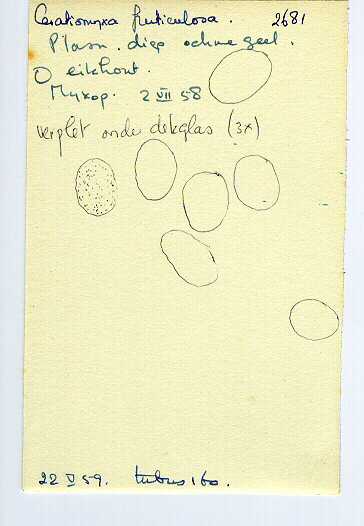 Ceratiomyxa fruticulosa. 2681
Plasm. diep okergeel.
O eikhout.
2 VII 58
onder dekglas (3x)
22 V 59. tubus 160.